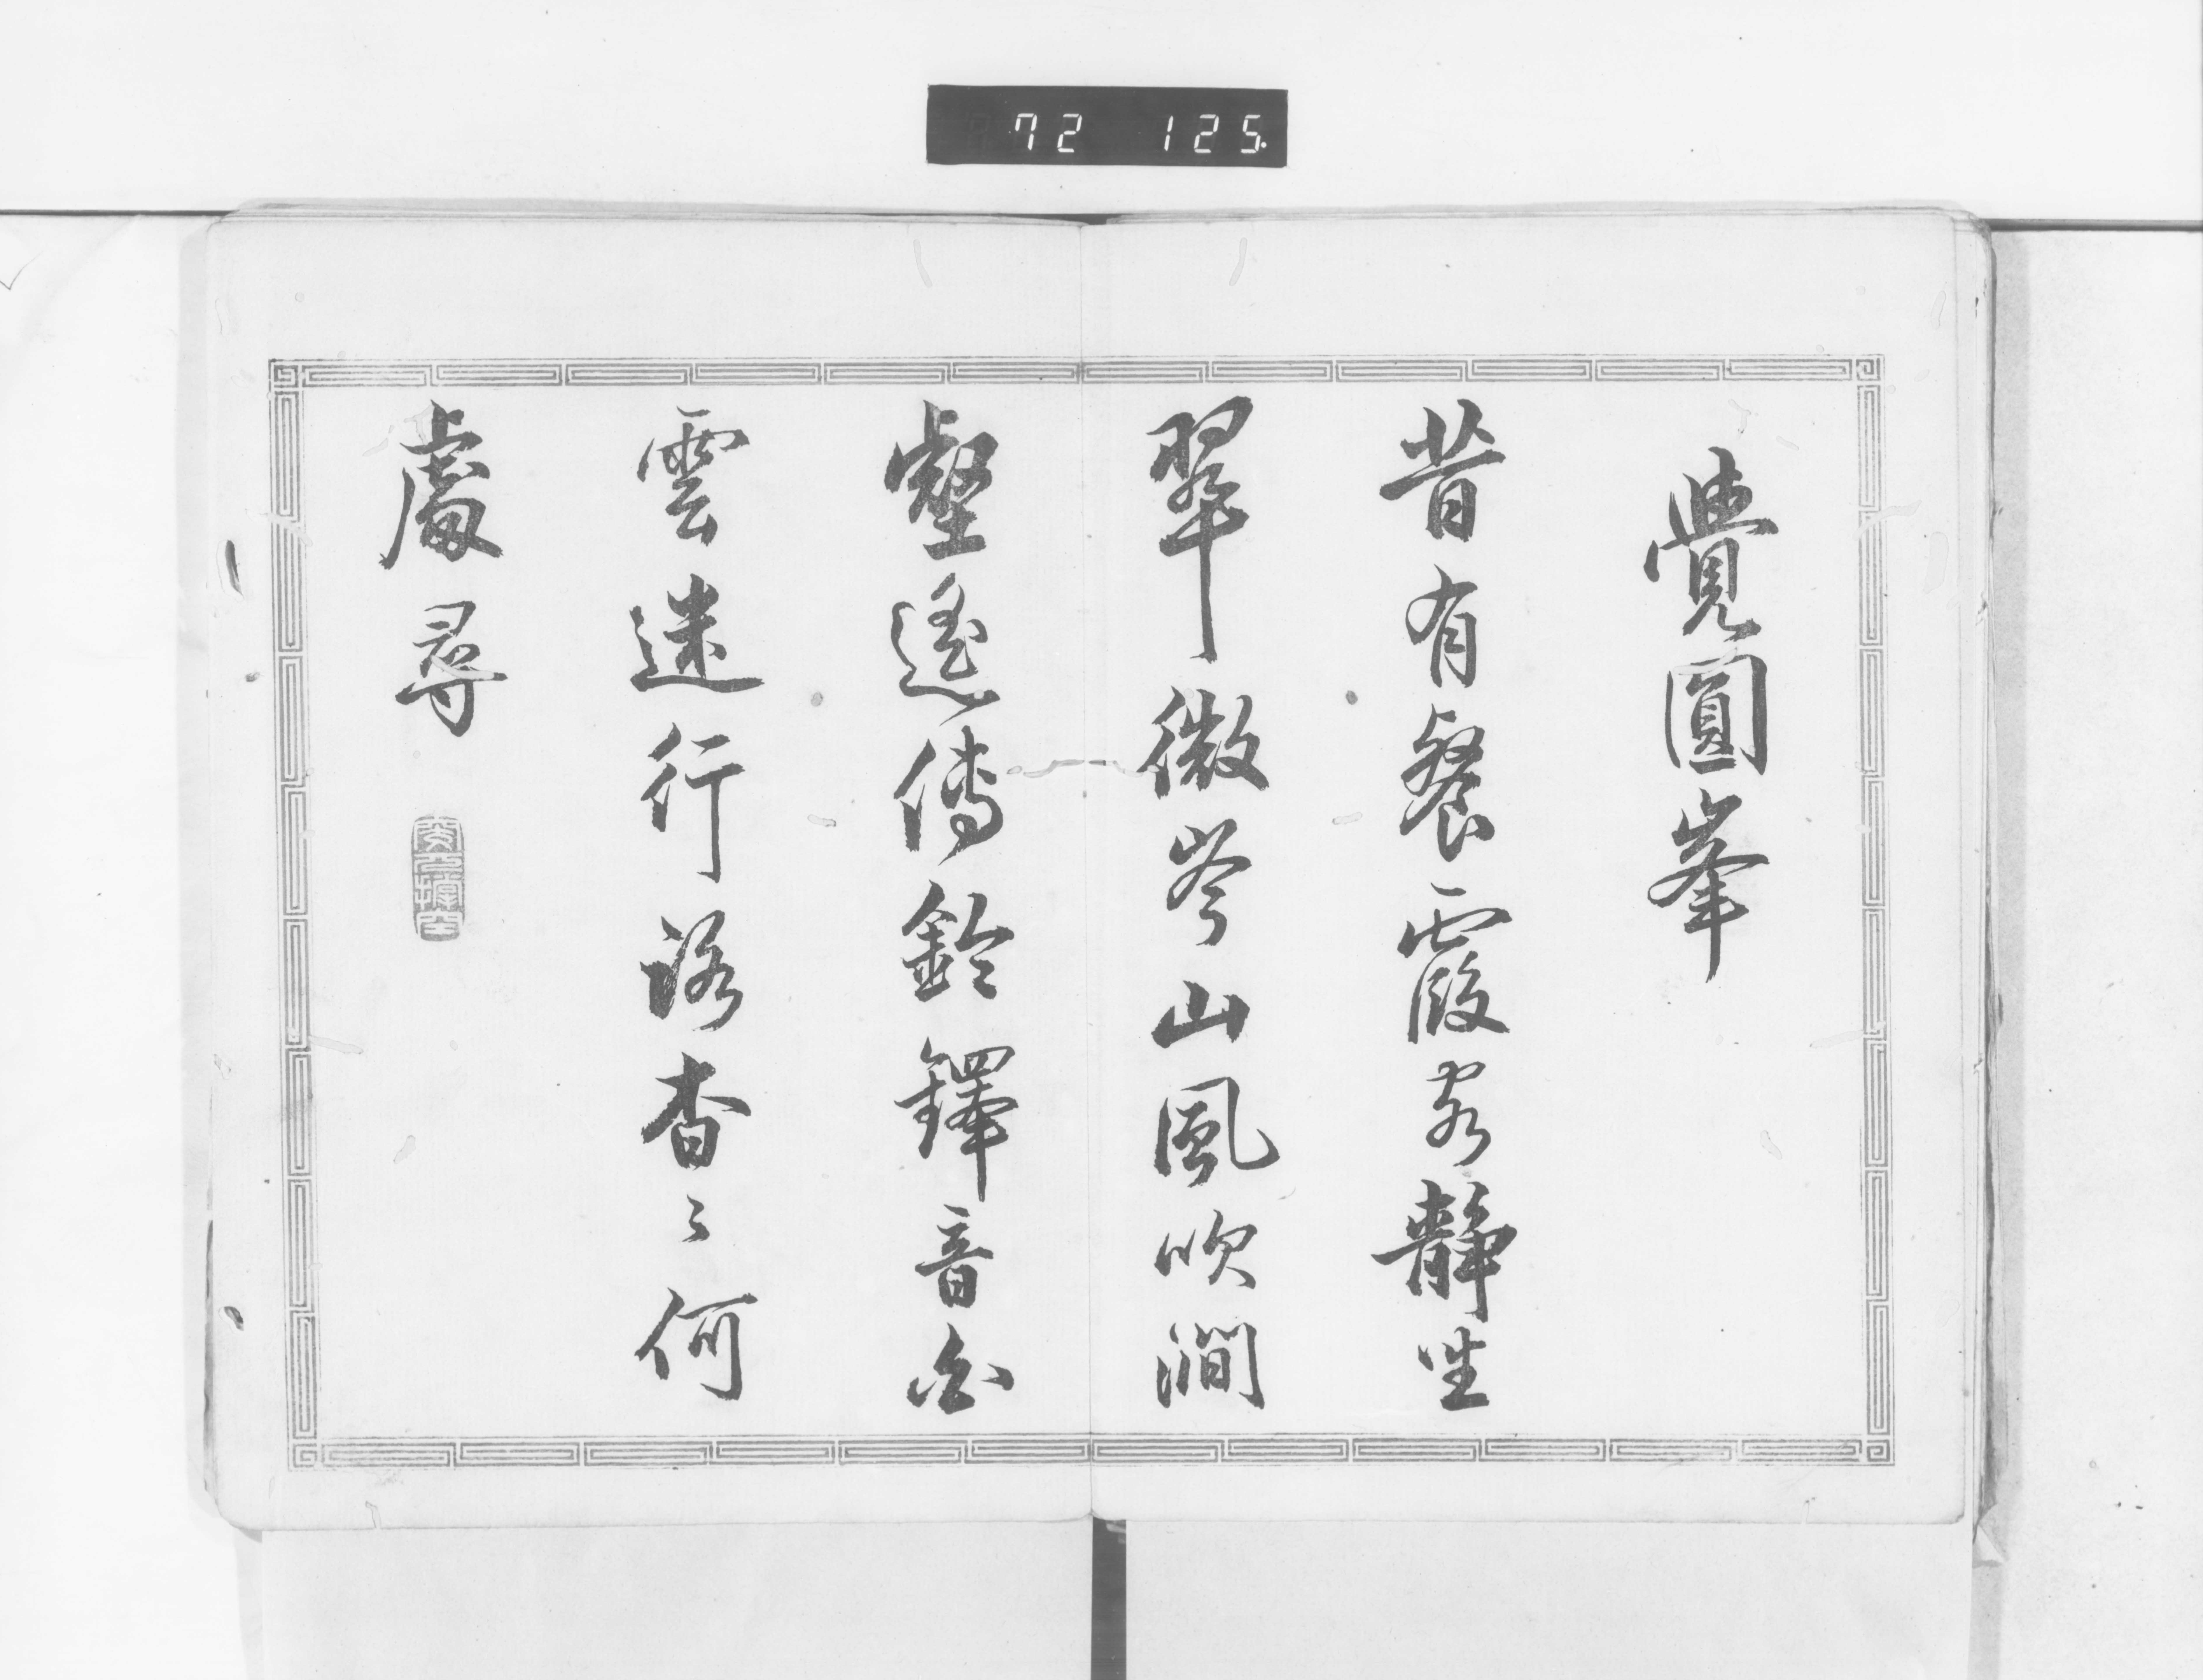 72 125
覺圓峯
昔有餐霞客靜坐
翠微岑山風吹澗
壑遙傳鈴鐸音白
雲迷行路杳〻何
處尋